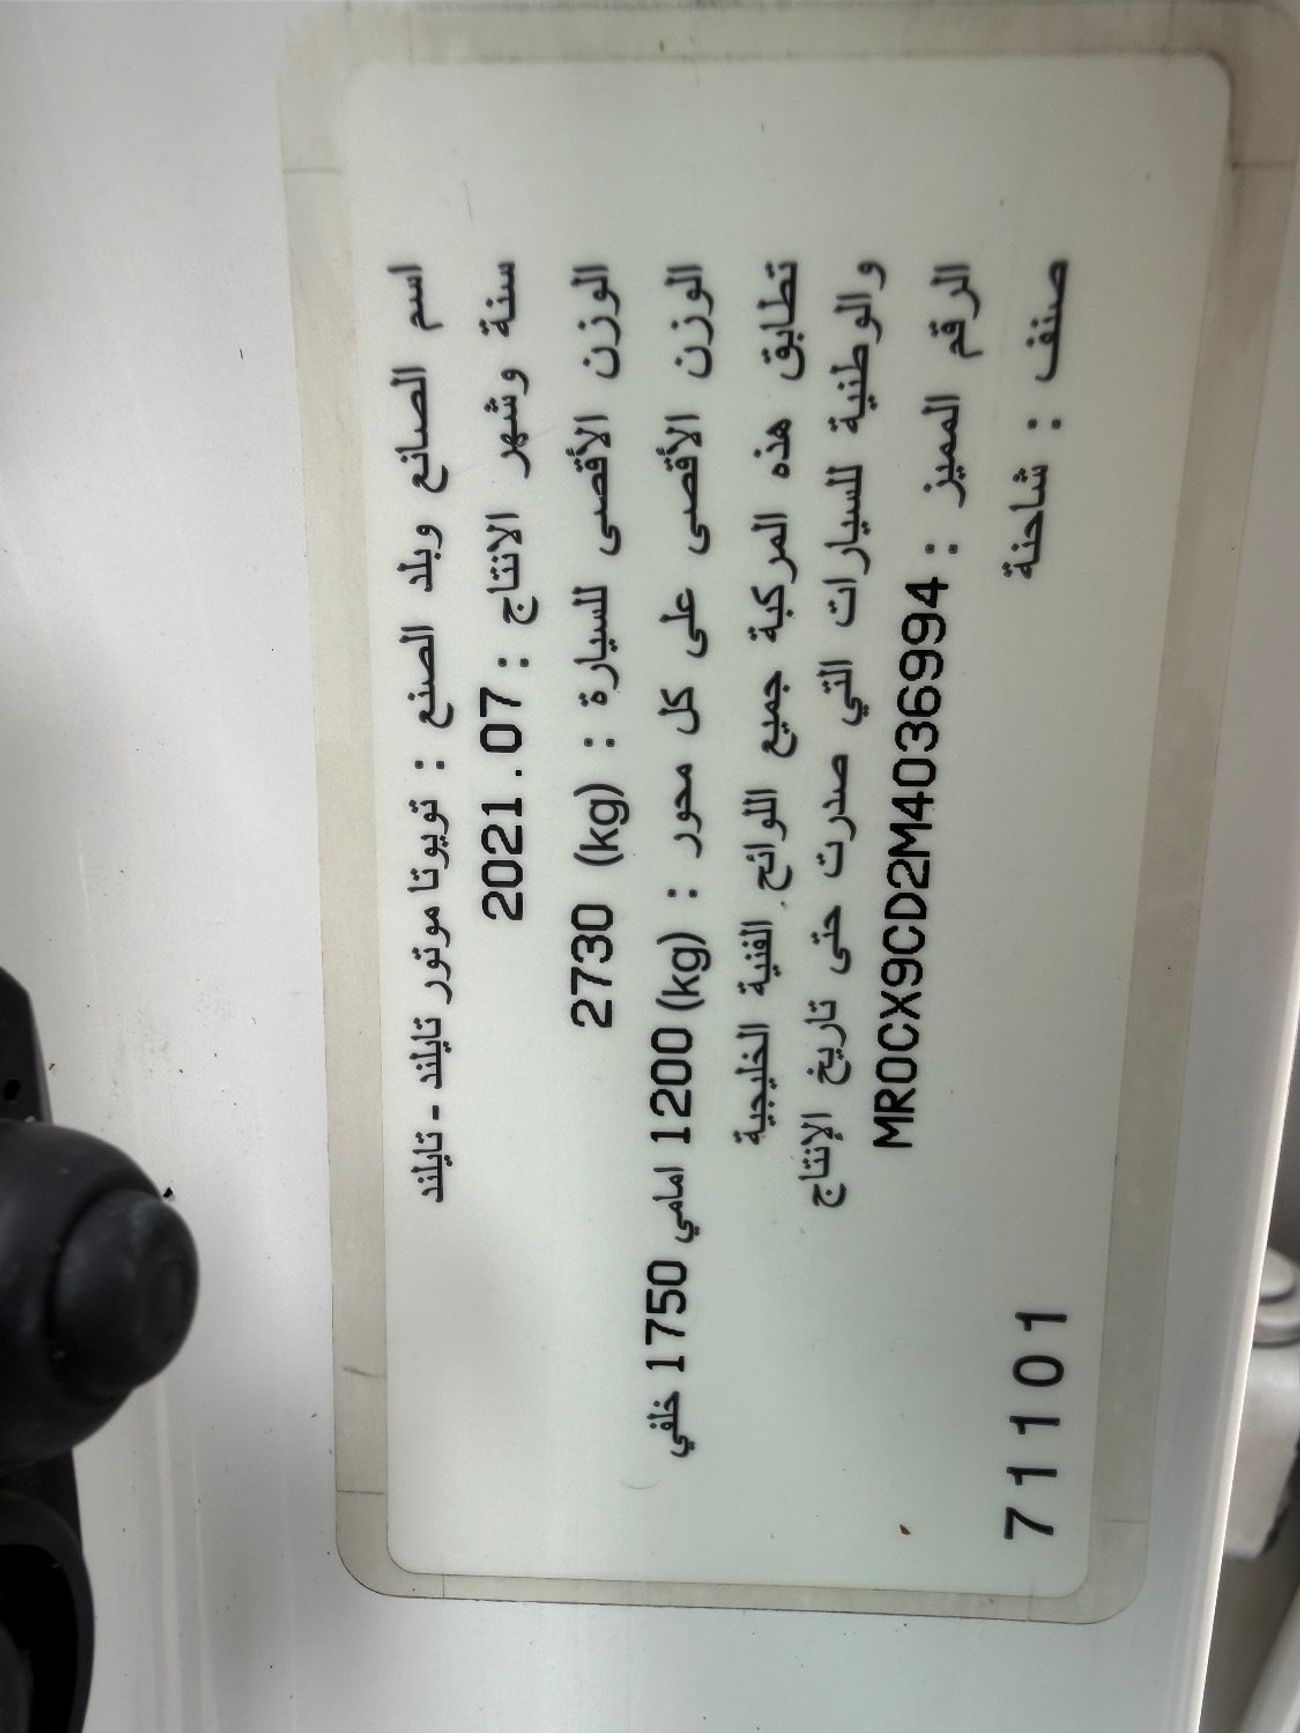 اسم الصانع وبلد الصنع : تويوتا موتور تايلند - تايلند
سنة وشهر الانتاج : 2021.07
الوزن الأقصى للسيارة : (kg) 2730
الوزن الأقصى على كل محور : (kg) 1200 امامي 1750 خلفي
تطابق هذه المركبة جميع اللوائح الفنية الخليجية
والوطنية للسيارات التي صدرت حتى تاريخ الإنتاج
الرقم المميز : MR0CX9CD2M4036994
صنف : شاحنة 71101